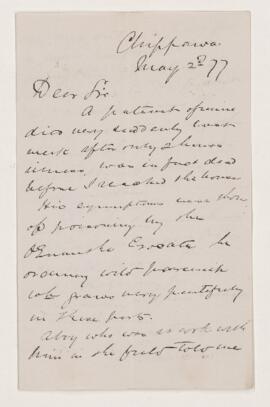 Chippawa
May 2nd 77
Dear Sir
A patient of mine
died very suddenly last
week after only 2 hours
illness, was in fact dead
before I reached the house
His symptoms were those
of poisoning by the
Oenanthe Crocata the
ordinary wild parsnip
wh. grows very plentifully
in these parts.
A boy who was at work with
him in the field told me